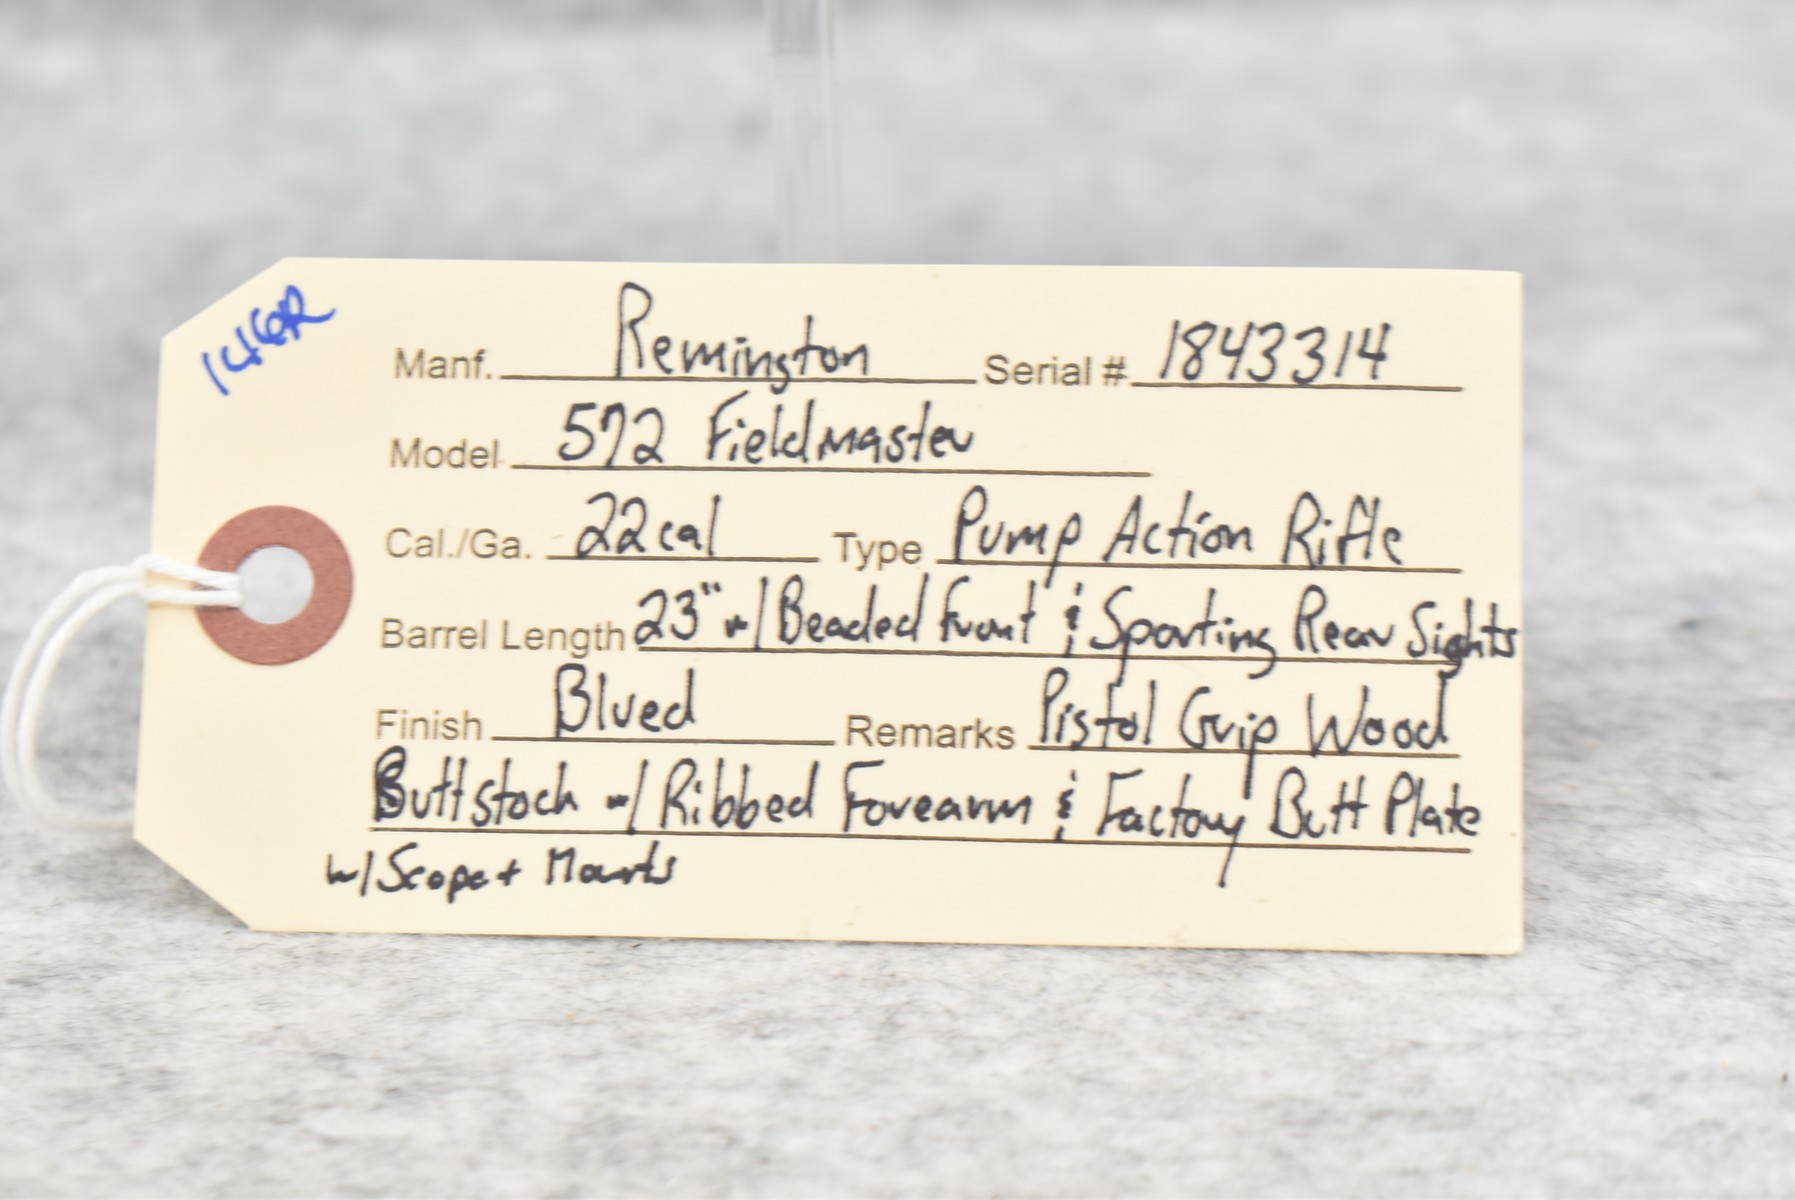 146R
Manf. Remington Serial # 1843314
Model 572 Fieldmaster
Cal./Ga. 22cal Type Pump Action Rifle
Barrel Length 23" w/ Beaded Front & Sporting Rear Sights
Finish Blued Remarks Pistol Grip Wood
Buttstock w/ Ribbed Forearm & Factory Butt Plate
w/ Scope + Mounts